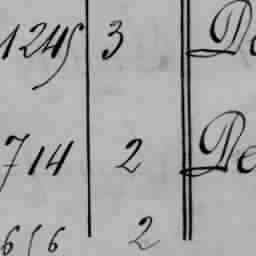 1245 3 De
714 2 De
656 2